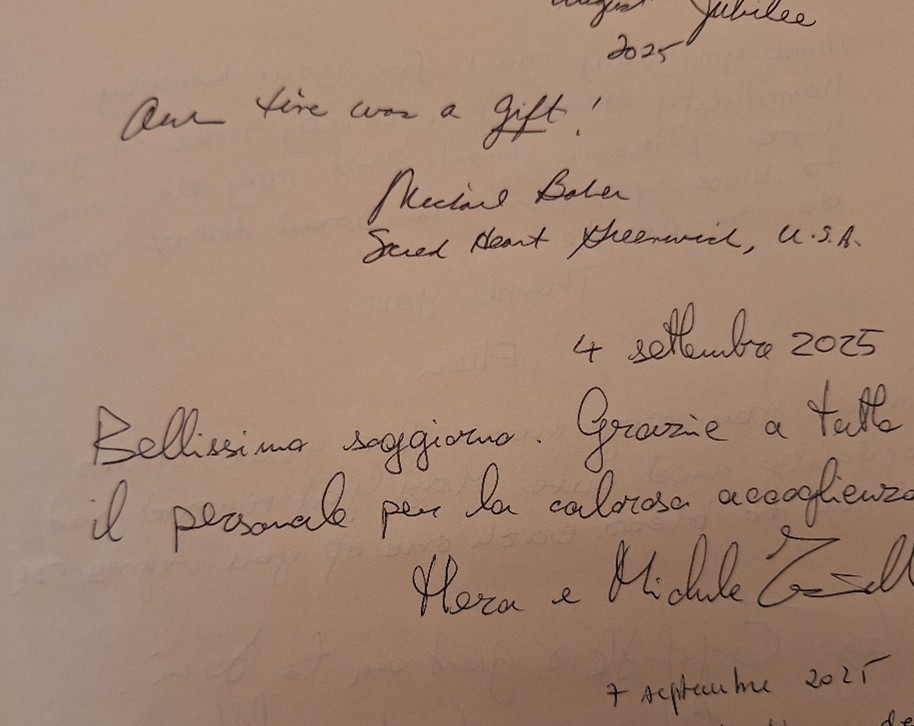 August Jubilee
2025
Our time was a gift!
Michael Baber
Sacred Heart Greenwich, U.S.A.
4 settembre 2025
Bellissimo soggiorno. Grazie a tutto
il personale per la calorosa accoglienza
e Michele
7 septembre 2025